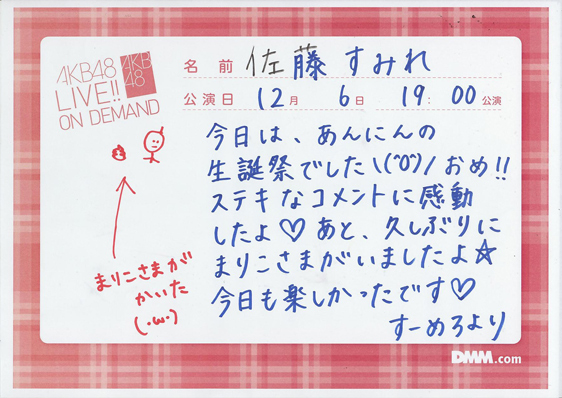 AKB48
LIVE!!
ON DEMAND
AKB
48
名前 佐藤 すみれ
公演日 12月 6日 19:00公演
今日は、あんにんの
生誕祭でした\(^0^)/おめ!!
ステキなコメントに感動
したよ♡あと、久しぶりに
まりこさまがいましたよ☆
今日も楽しかったです♡
すーめろより
まりこさまが
かいた
(・ω・)
DMM.com